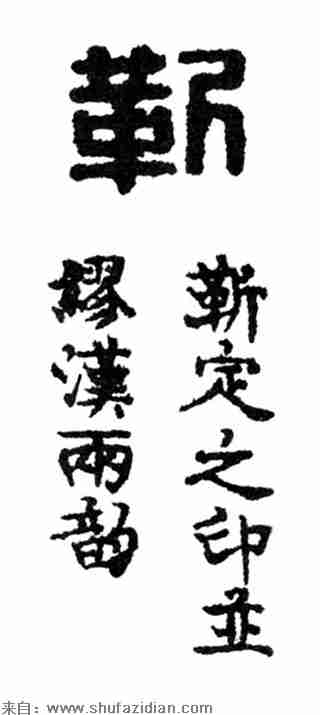 靳
靳定之印並
繆漢兩韵
来自：www.shufazidian.com